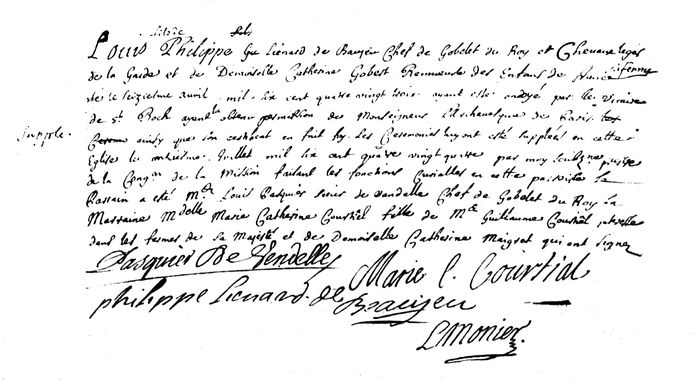 fils de
Louis Philippe Lienard de Beaujeu Chef de Gobelet du Roy et Chevaux legers
de la Garde et de Demoiselle Catherine Gobert Remueuse des Enfans de france sa femme
né le seizieme avril mil six cent quatre vingt trois ayant esté ondoyé par le Vicaire
de St Roch ayant obtenu permission de Monseigneur L'Archevesque de Paris
Supple. ainsy que son certificat en fait foy Les Ceremonies luy ont esté suppleées en cette
Eglise le juillet mil six cent quatre vingt par moy soubsigné prestre
de la Congon de la Mission faisant les fonctions Curialles en cette paroisse Le
Parrain a esté Mre Louis Pasquier sieur de Vandelle Chef de Gobelet du Roy La
Marraine Mdelle Marie Catherine Courtial fille de Mre Guillaume Courtial
dans les fermes de sa Majesté et de Demoiselle Catherine Maigret qui ont signez
Pasquier De Vendelles
Marie C. Courtial
philippe Lienard. de Beaujeu
Lmonier.